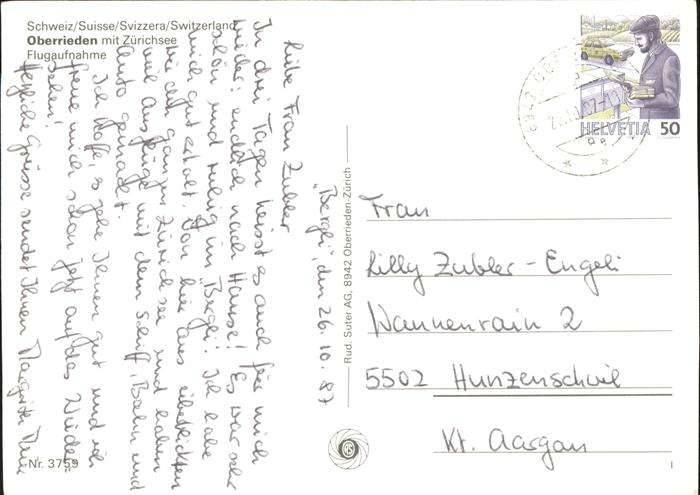 Schweiz/Suisse/Svizzera/Switzerland
Oberrieden mit Zürichsee
Flugaufnahme
HELVETIA 50
"Bergli", den 26.10.87
Liebe Frau Zubler
In drei Tagen heisst es auch für mich
wieder: endlich nach Hause! Es war sehr
schön und ruhig im "Bergli". Ich habe
mich gut erholt. Von hier aus
wir den ganzen Zürichsee und haben
viele Ausflüge mit dem Schiff, Bahn und
Auto gemacht.
Ich hoffe, es gehe Ihnen gut und ich
freue mich schon jetzt auf das Wieder-
sehen!
Herzliche Grüsse sendet Ihnen Margrith
Rud. Suter AG, 8942 Oberrieden-Zürich
Frau
Lilly Zubler-Engeli
Wannenrain 2
5502 Hunzenschwil
Kt. Aargau
Nr. 3759